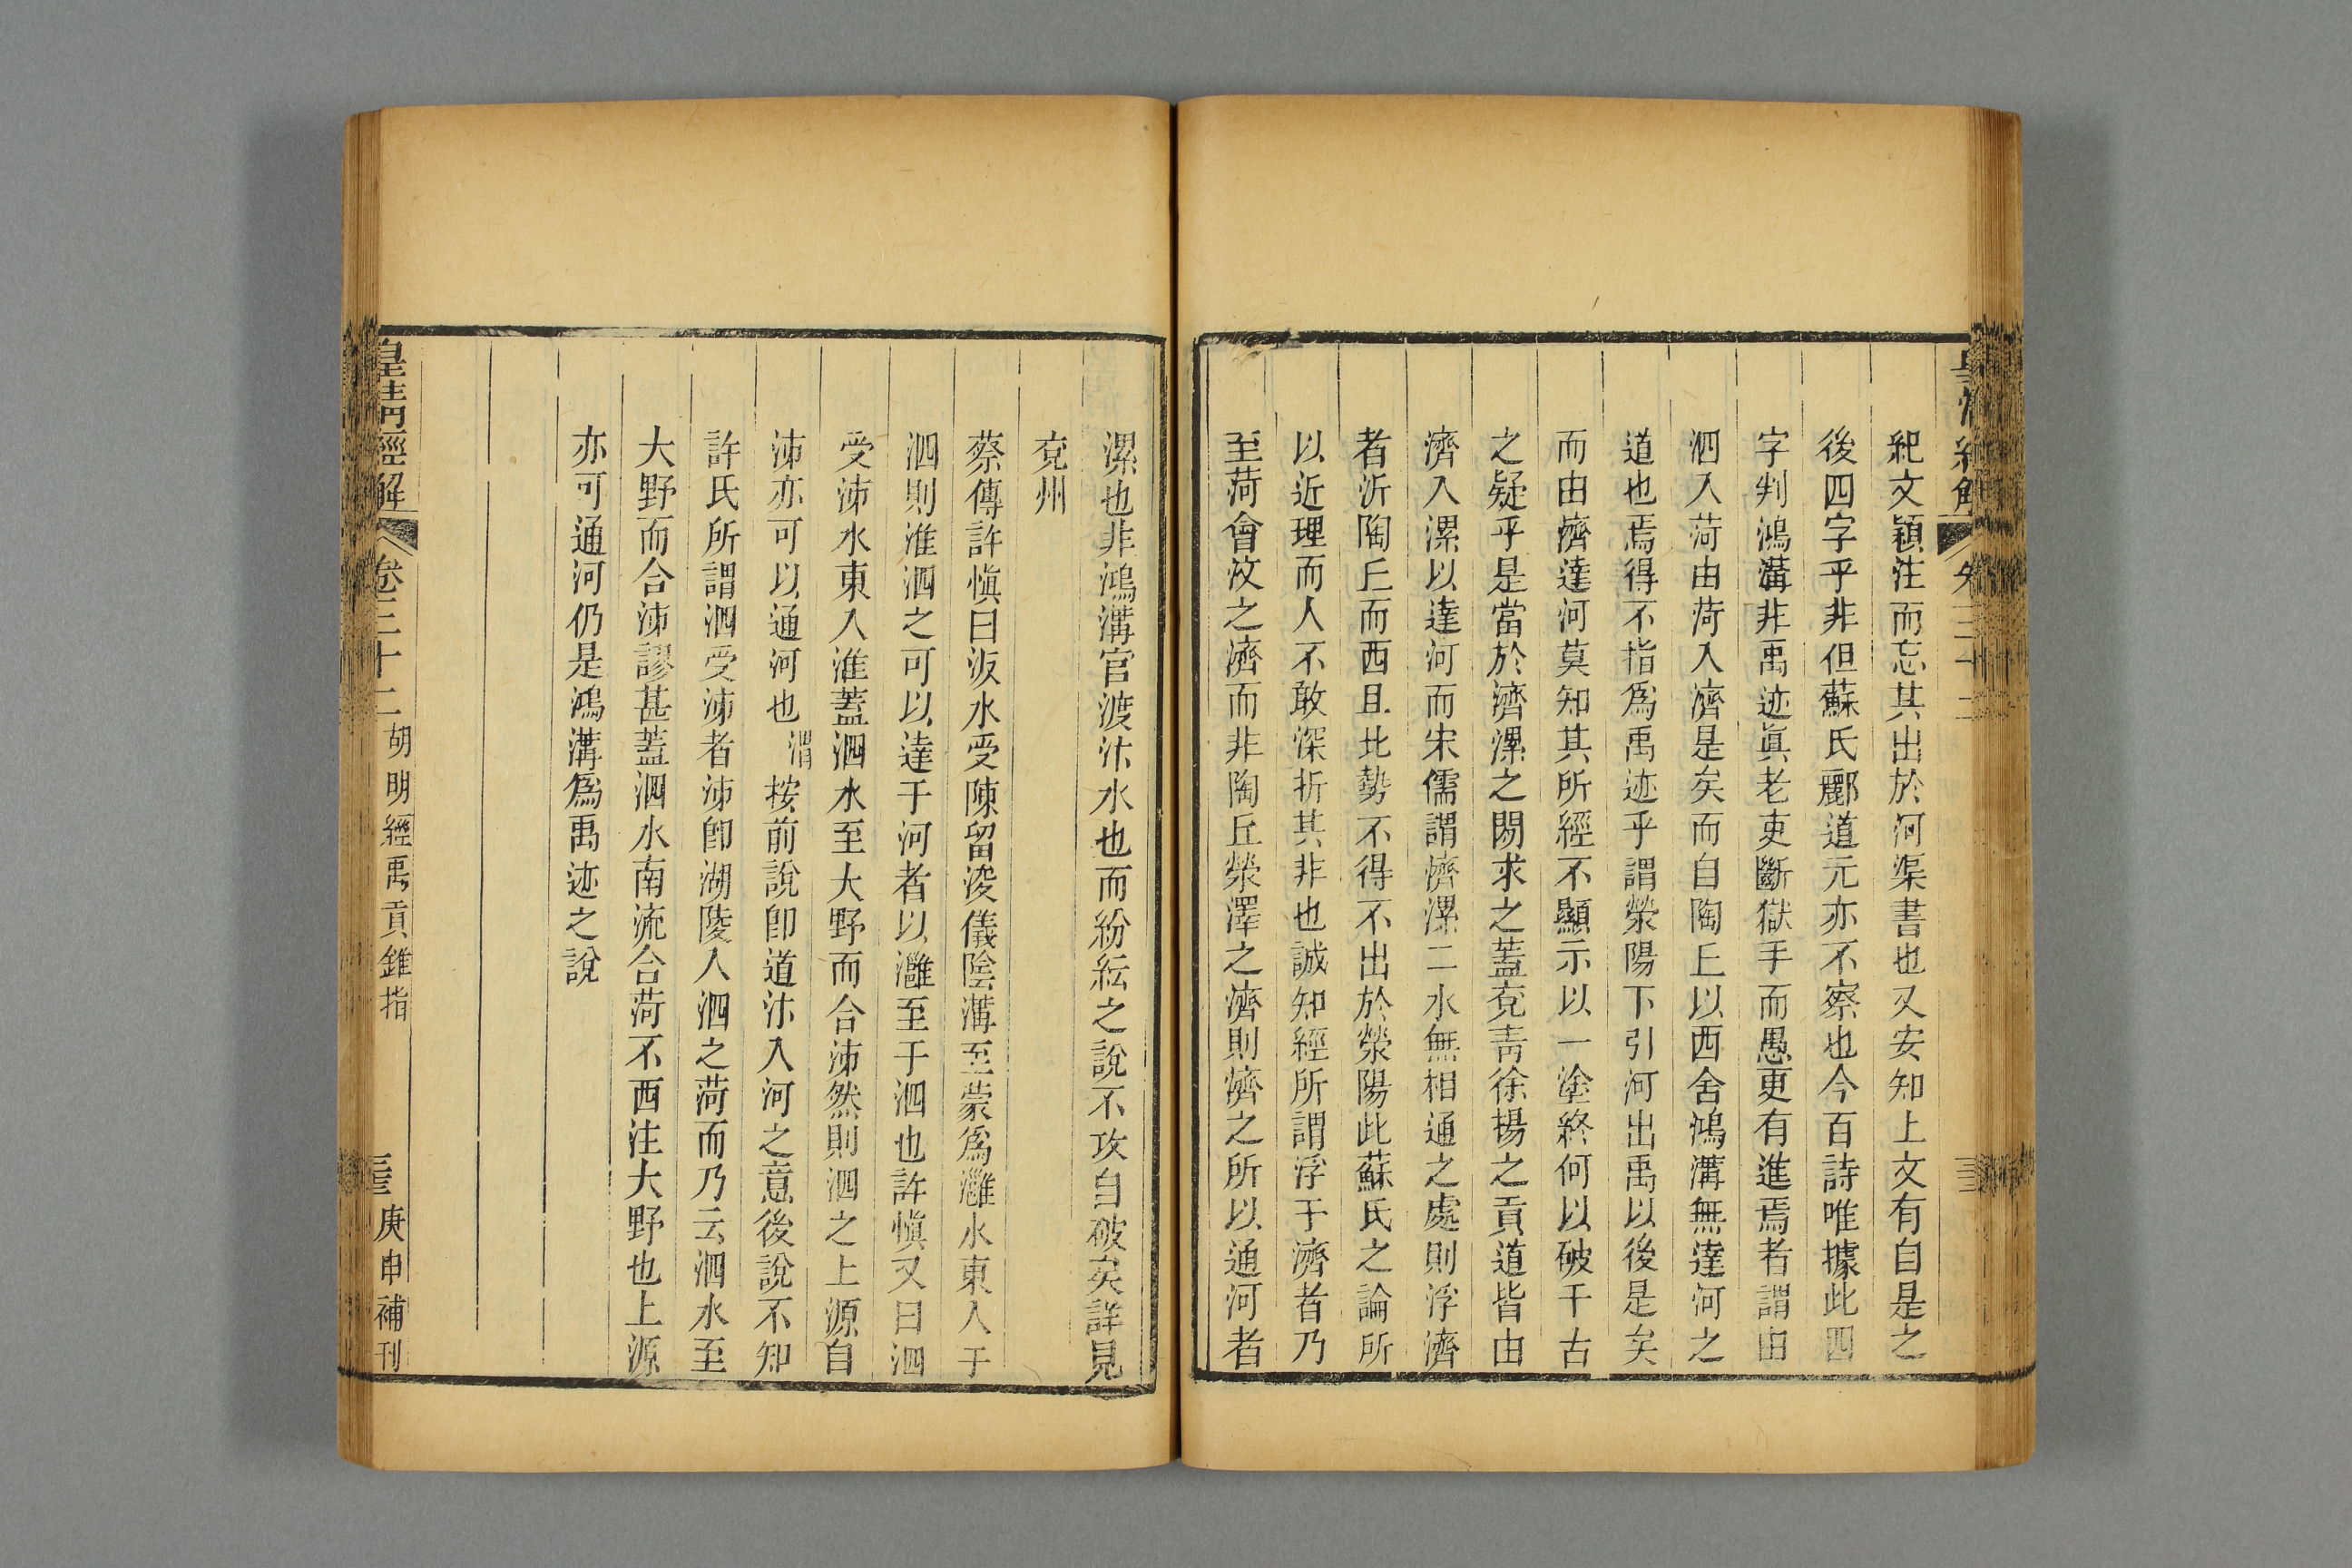 紀文穎注而忘其出於河渠書也又安知上文有自是之
後四字乎非但蘇氏酈道元亦不察也今百詩唯據此四
字判鴻溝非禹迹眞老吏斷獄手而愚更有進焉者謂由
泗入菏由菏入濟是矣而自陶丘以西舍鴻溝無達河之
道也焉得不指爲禹迹乎謂滎陽下引河出禹以後是矣
而由濟達河莫知其所經不顯示以一塗終何以破千古
之疑乎是當於濟漯之閒求之蓋兗靑徐揚之貢道皆由
濟入漯以達河而宋儒謂濟漯二水無相通之處則浮濟
者泝陶丘而西且北勢不得不出於滎陽此蘇氏之論所
以近理而人不敢深折其非也誠知經所謂浮于濟者乃
至菏會汶之濟而非陶丘滎澤之濟則濟之所以通河者
漯也非鴻溝官渡汴水也而紛紜之說不攻自破矣詳見
兗州
蔡傳許愼曰汳水受陳留浚儀陰溝至蒙爲灉水東入于
泗則淮泗之可以達于河者以灉至于泗也許愼又曰泗
受泲水東入淮蓋泗水至大野而合泲然則泗之上源自
泲亦可以通河也渭按前說卽道汴入河之意後說不知
許氏所謂泗受泲者泲卽湖陵入泗之菏而乃云泗水至
大野而合泲謬甚蓋泗水南流合菏不西注大野也上源
亦可通河仍是鴻溝爲禹迹之說
皇淸經解 卷三十二 胡明經禹貢錐指 庚申補刊